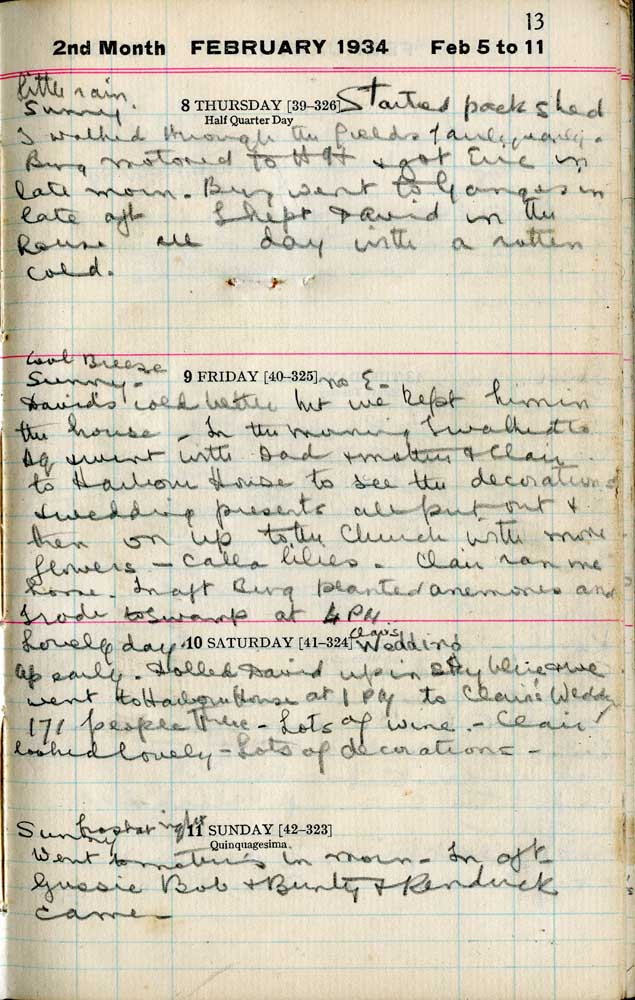 13
2nd Month FEBRUARY 1934 Feb 5 to 11
little rain.
Sunny
8 THURSDAY [39–326] Started pack shed
Half Quarter Day
I walked through the fields
motored to H H & got Eric in
late morn. went to Ganges in
late aft I kept David in the
house all day with a rotten
cold.
Cool Breeze
Sunny-
9 FRIDAY [40–325] no E-
David's cold better but we kept him in
the house - In the morning I walked to
& went with Dad & mother & Clair
to Harbour House to see the decorations
& wedding presents all put out &
then on up to the Church with more
flowers - Calla lilies. Clair ran me
home. In aft planted anemones and
I rode to Swamp at 4 PM
Lovely day.
10 SATURDAY [41–324] Clair's Wedding
Up early. Dolled David up in sky blue & we
went to Harbour House at 1 PM to Clair's Wedding
171 people There - Lots of wine. - Clair
looked lovely - Lots of decorations -
Sunny frost at night
11 SUNDAY [42–323]
Quinquagesima.
Went to mother's in morn - In aft
Gussie Bob & Bunty & Kendrick
came -